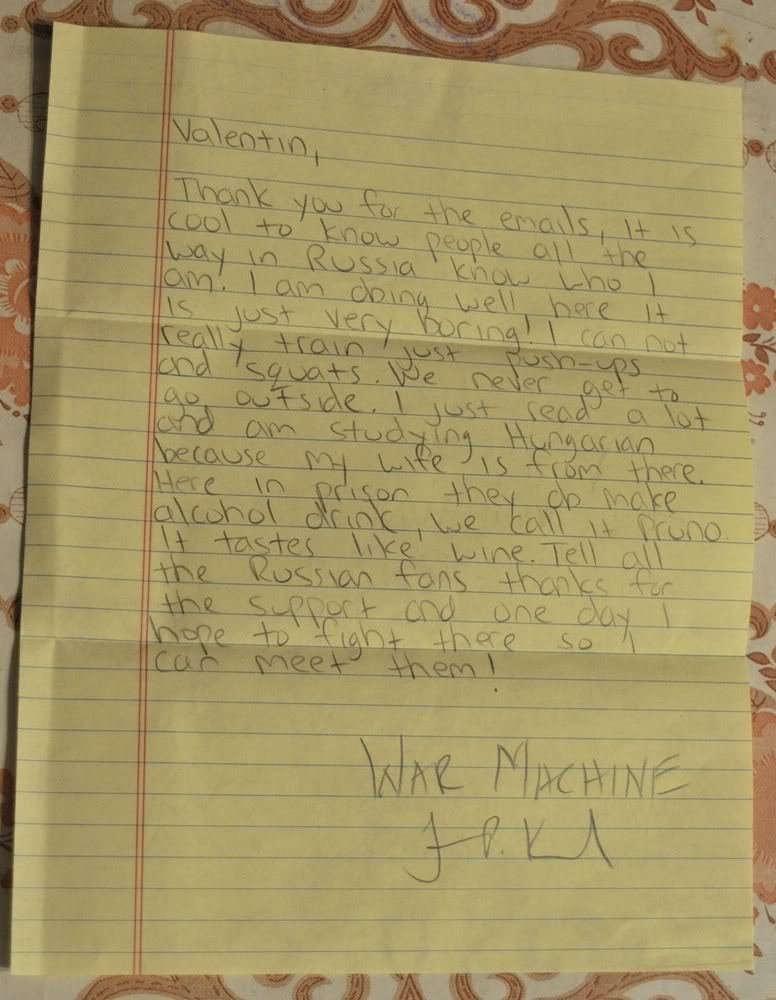 Valentin,
Thank you for the emails, It is
cool to know people all the
way in Russia know who I
am. I am doing well here It
is just very boring! I can not
really train just push-ups
and squats. We never get to
go outside. I just read a lot
and am studying Hungarian
because my wife is from there.
Here in prison they do make
alcohol drink, we call it Pruno.
It tastes like wine. Tell all
the Russian fans thanks for
the support and one day I
hope to fight there so I
can meet them!
WAR MACHINE